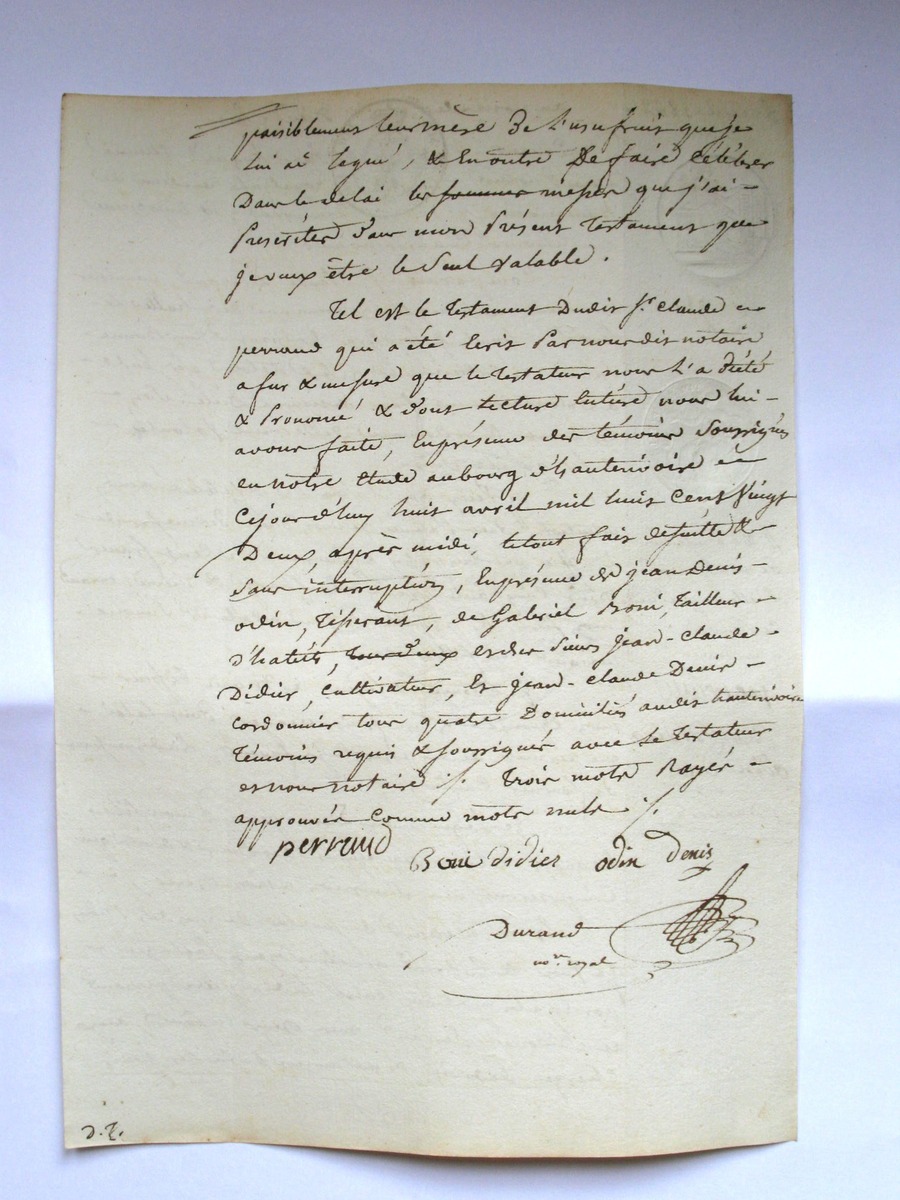 paisiblement leur mère de l'usufruit que je
lui ai legué, & en outre de faire célébrer
dans le delai les sommes messes que j'ai
Prescrites dans mon Présent testament que
je veux être le seul valable.
Tel est le testament dudit Sr. claude
perraud qui a été écrit Par nous dit notaire
a fur & mesure que le testateur nous l'a dicté
& Prononcé & dont lecture entière nous lui
avons faite, En présence des témoins soussignés
en notre étude au bourg d'hauterivoire
Cejourd'huy huit avril mil huit cent Vingt
Deux après midi, le tout fait de suite &
sans interruption, En présence de jean Denis
odin, de Gabriel Boni, tailleur
d'habits, tous deux et des sieurs jean-claude
Didier, cultivateur, Et jean-claude Denis
cordonnier tous quatre Domiciliés audit hauterivoire
témoins requis & soussignés avec le testateur
et nous notaire ./. trois mots Rayés
approuvés comme mots nuls ./.
perraud
Boni didier odin denis
Durand
no.re royal
d. t.